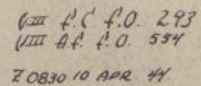 VIII F.C. F.O. 293
VIII A.F. F.O. 554
Z 0830 10 APR. 44